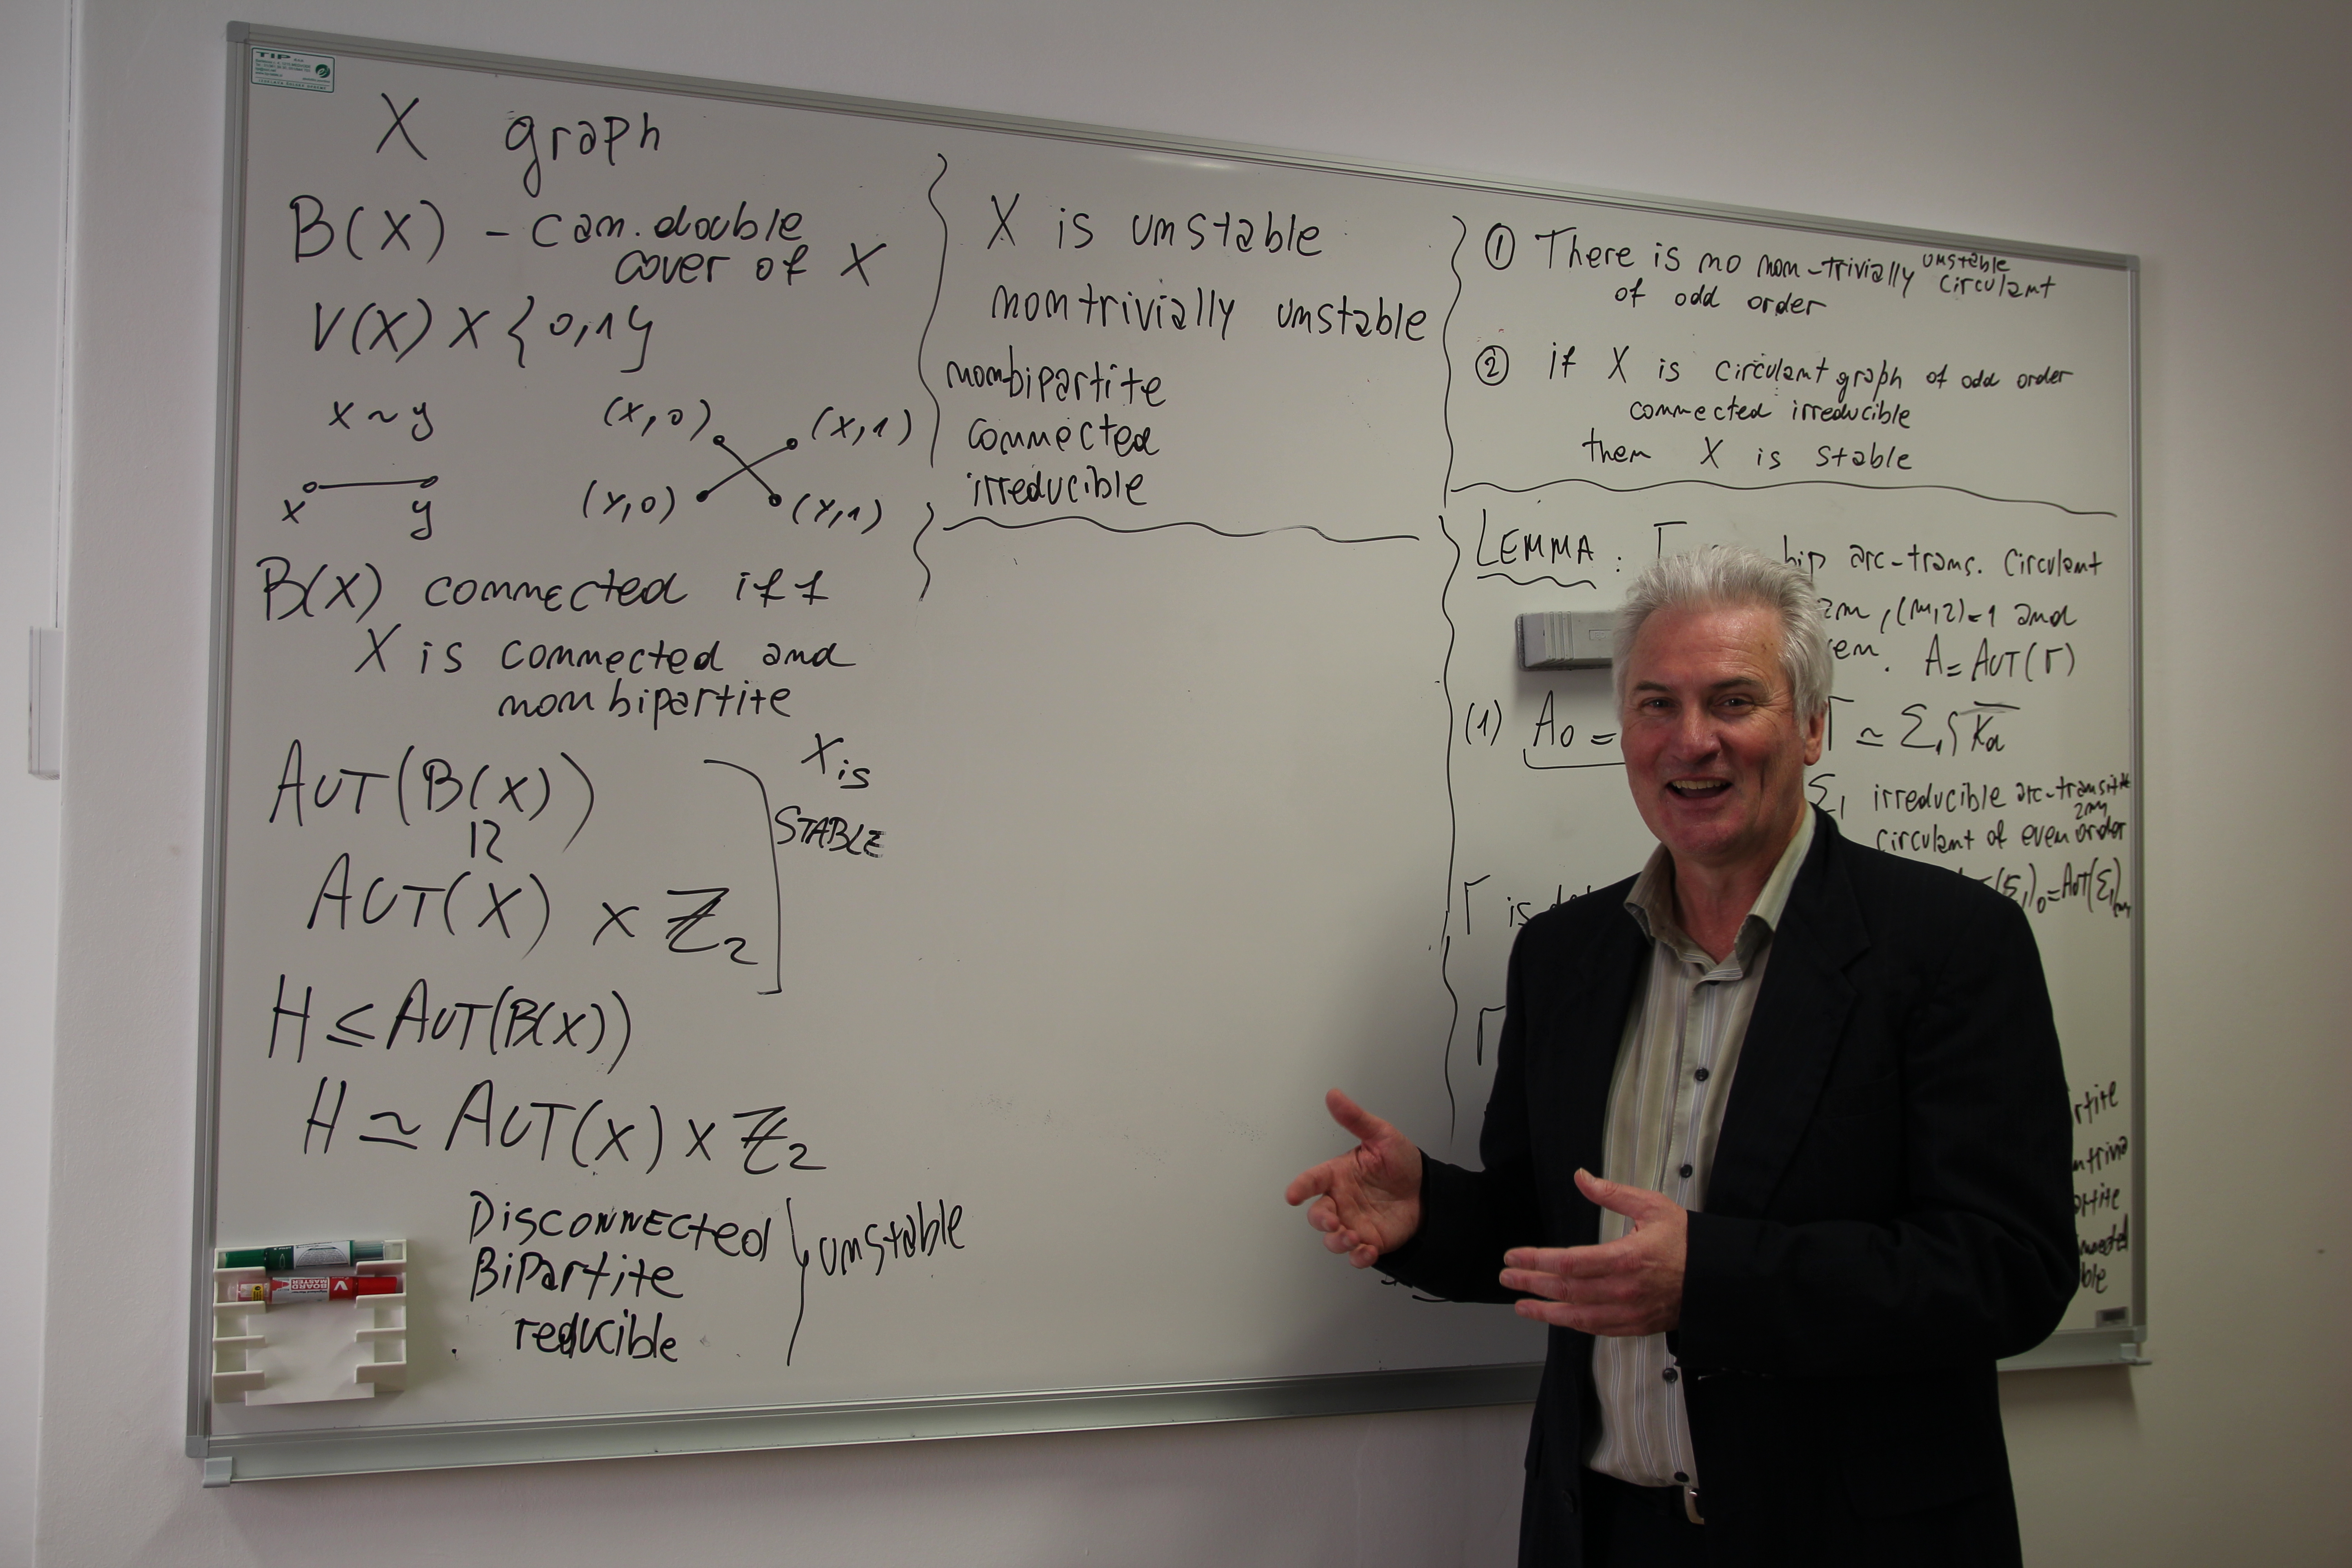 TIP
X graph
B(X) - can. double
cover of X
V(X) X {0,1}
x ~ y
(x,0) (x,1)
x y
(y,0) (y,1)
B(X) connected iff
X is connected and
nonbipartite
AUT(B(X))
≃
AUT(X) × ℤ₂
X is
STABLE
H ≤ AUT(B(X))
H ≃ AUT(X) × ℤ₂
DISCONNECTED
BiPartite
reducible
unstable
X is unstable
nontrivially unstable
nonbipartite
connected
irreducible
① There is no non-trivially unstable circulant
of odd order
② if X is circulant graph of odd order
connected irreducible
then X is stable
LEMMA : Γ bip arc-trans. Circulant
2m, (m,2)=1 and
A = AUT(Γ)
(1) A₀ = Γ ≃ Σ₁ ≀ K̄d
Σ₁ irreducible arc-transitive
circulant of even order
2m₁
(Σ₁)₀ = AUT(Σ₁)m₁
Γ is
Γ
BOARD MASTER
V